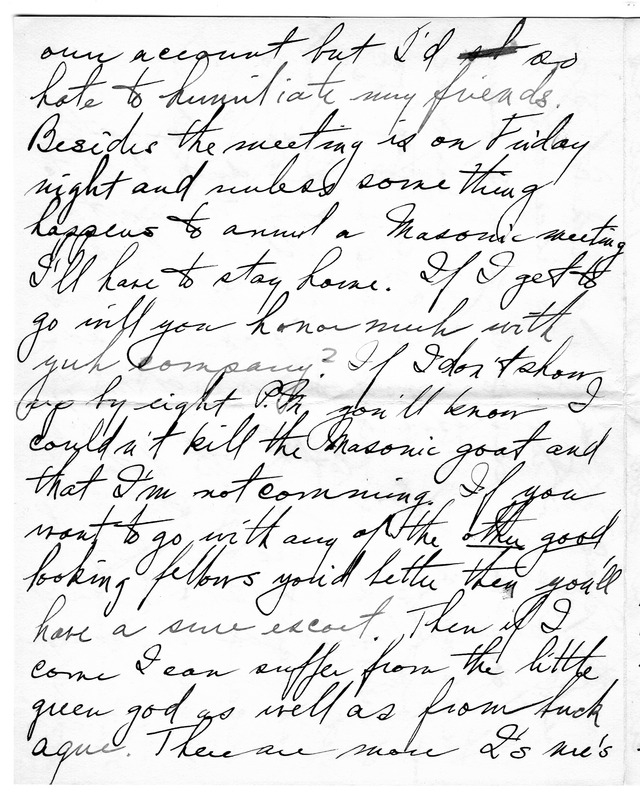 own account but I'd so
hate to humiliate my friends.
Besides the meeting is on Friday
night and unless something
happens to annul a Masonic meeting
I'll have to stay home. If I get to
go will you honor me uh with
yuh company? If I don't show
up by eight P.M. you'll know I
couldn't kill the Masonic goat and
that I'm not comming. If you
want to go with any of the other good
looking fellows you'd better then you'll
have a sure escort. Then if I
come I can suffer from the little
green god as well as from buck
ague. There are more I's me's